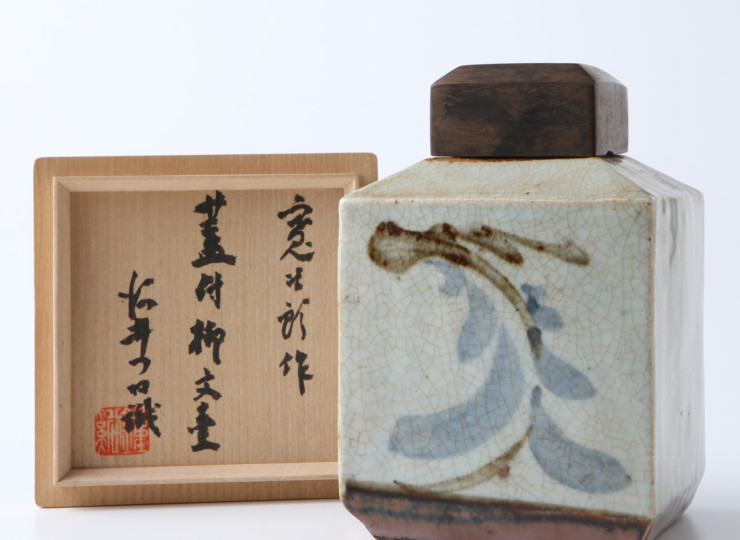 寛次郎作
蓋付柳文壷
河井つね識